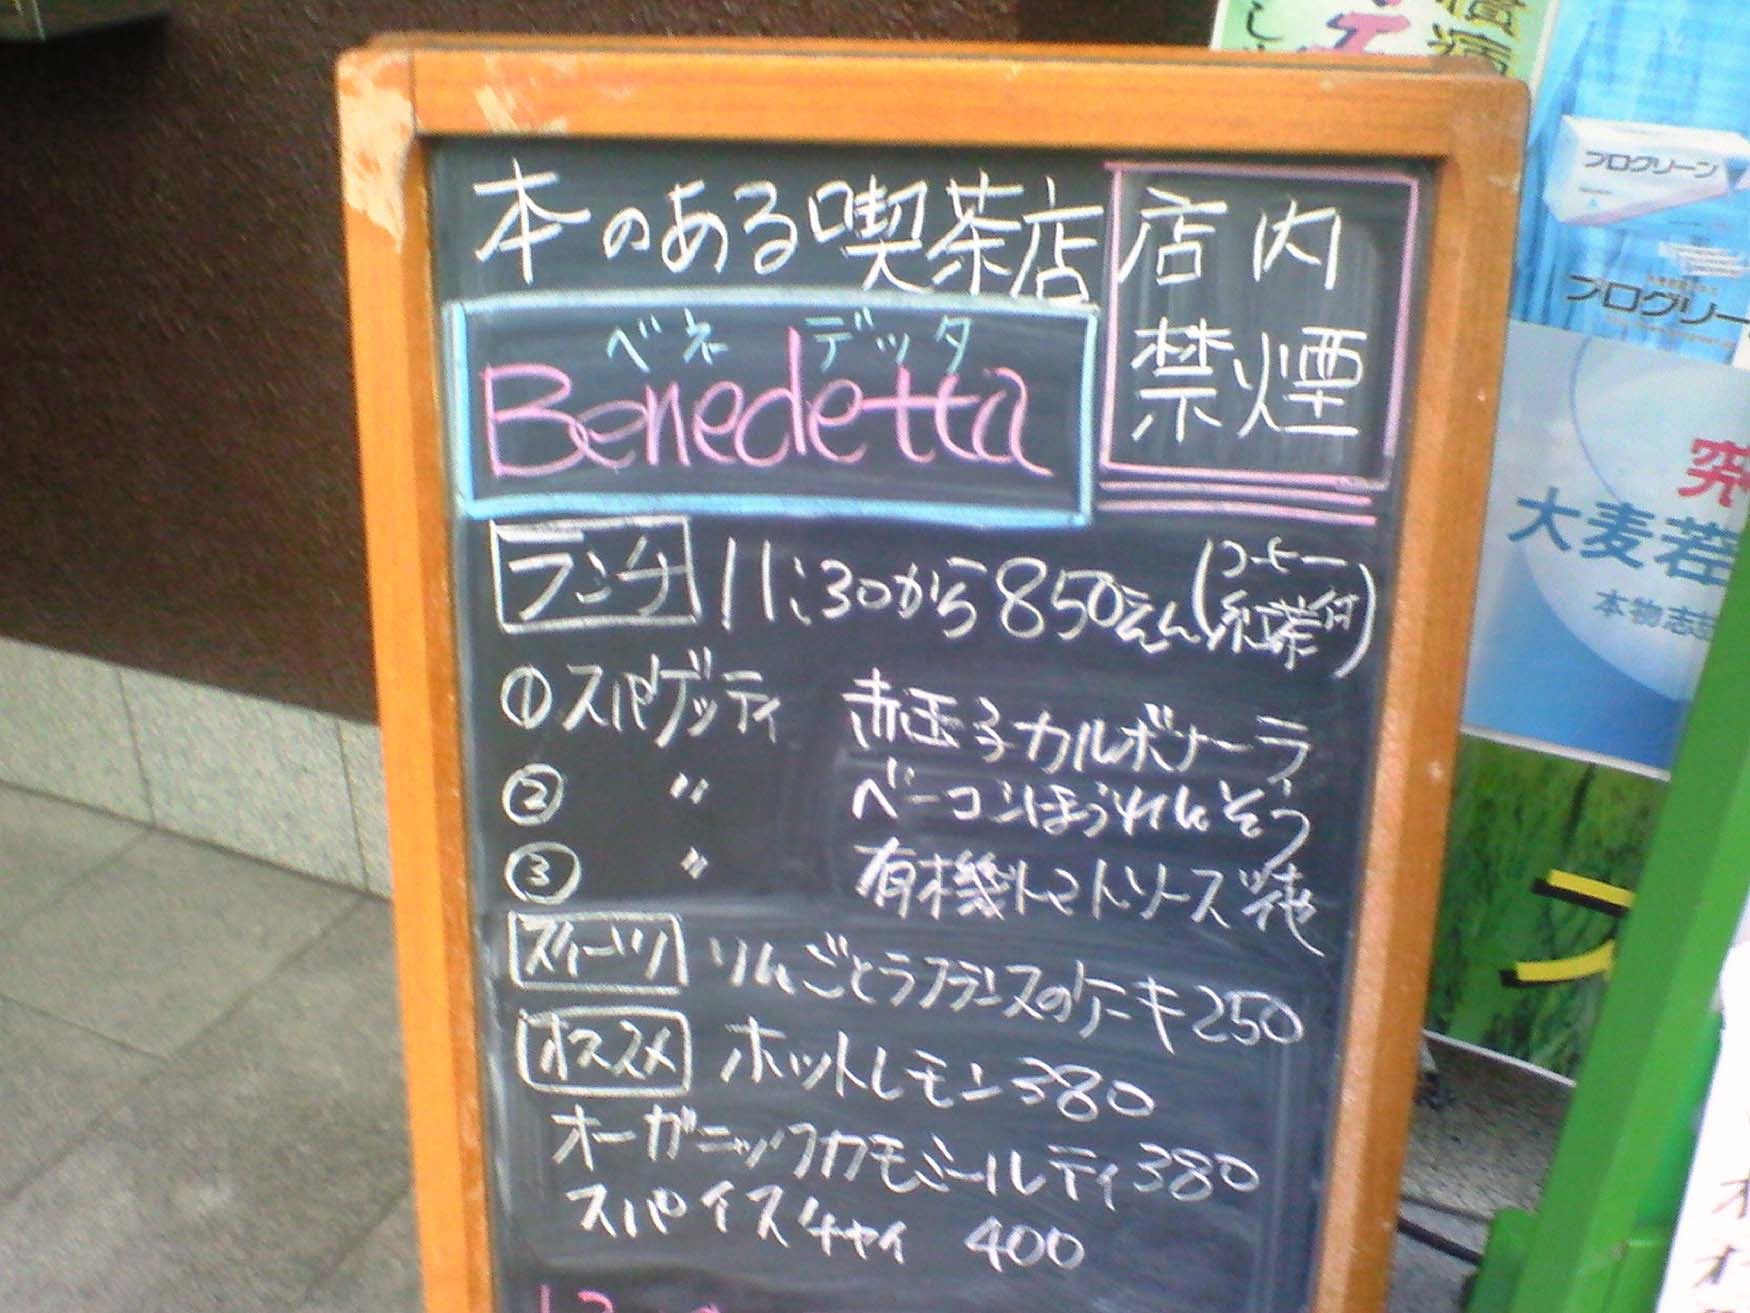 本のある喫茶店
店内
禁煙
ベネデッタ
Benedetta
ランチ 11:30から850えん(コーヒー
紅茶付)
①スパゲッティ 赤玉子カルボナーラ
② 〃 ベーコンほうれんそう
③ 〃 有機トマトソース
スイーツ りんごとラフランスのケーキ250
オススメ ホットレモン380
オーガニックカモミールティ380
スパイスチャイ 400
プログリーン
プログリー
大麦若
本物志